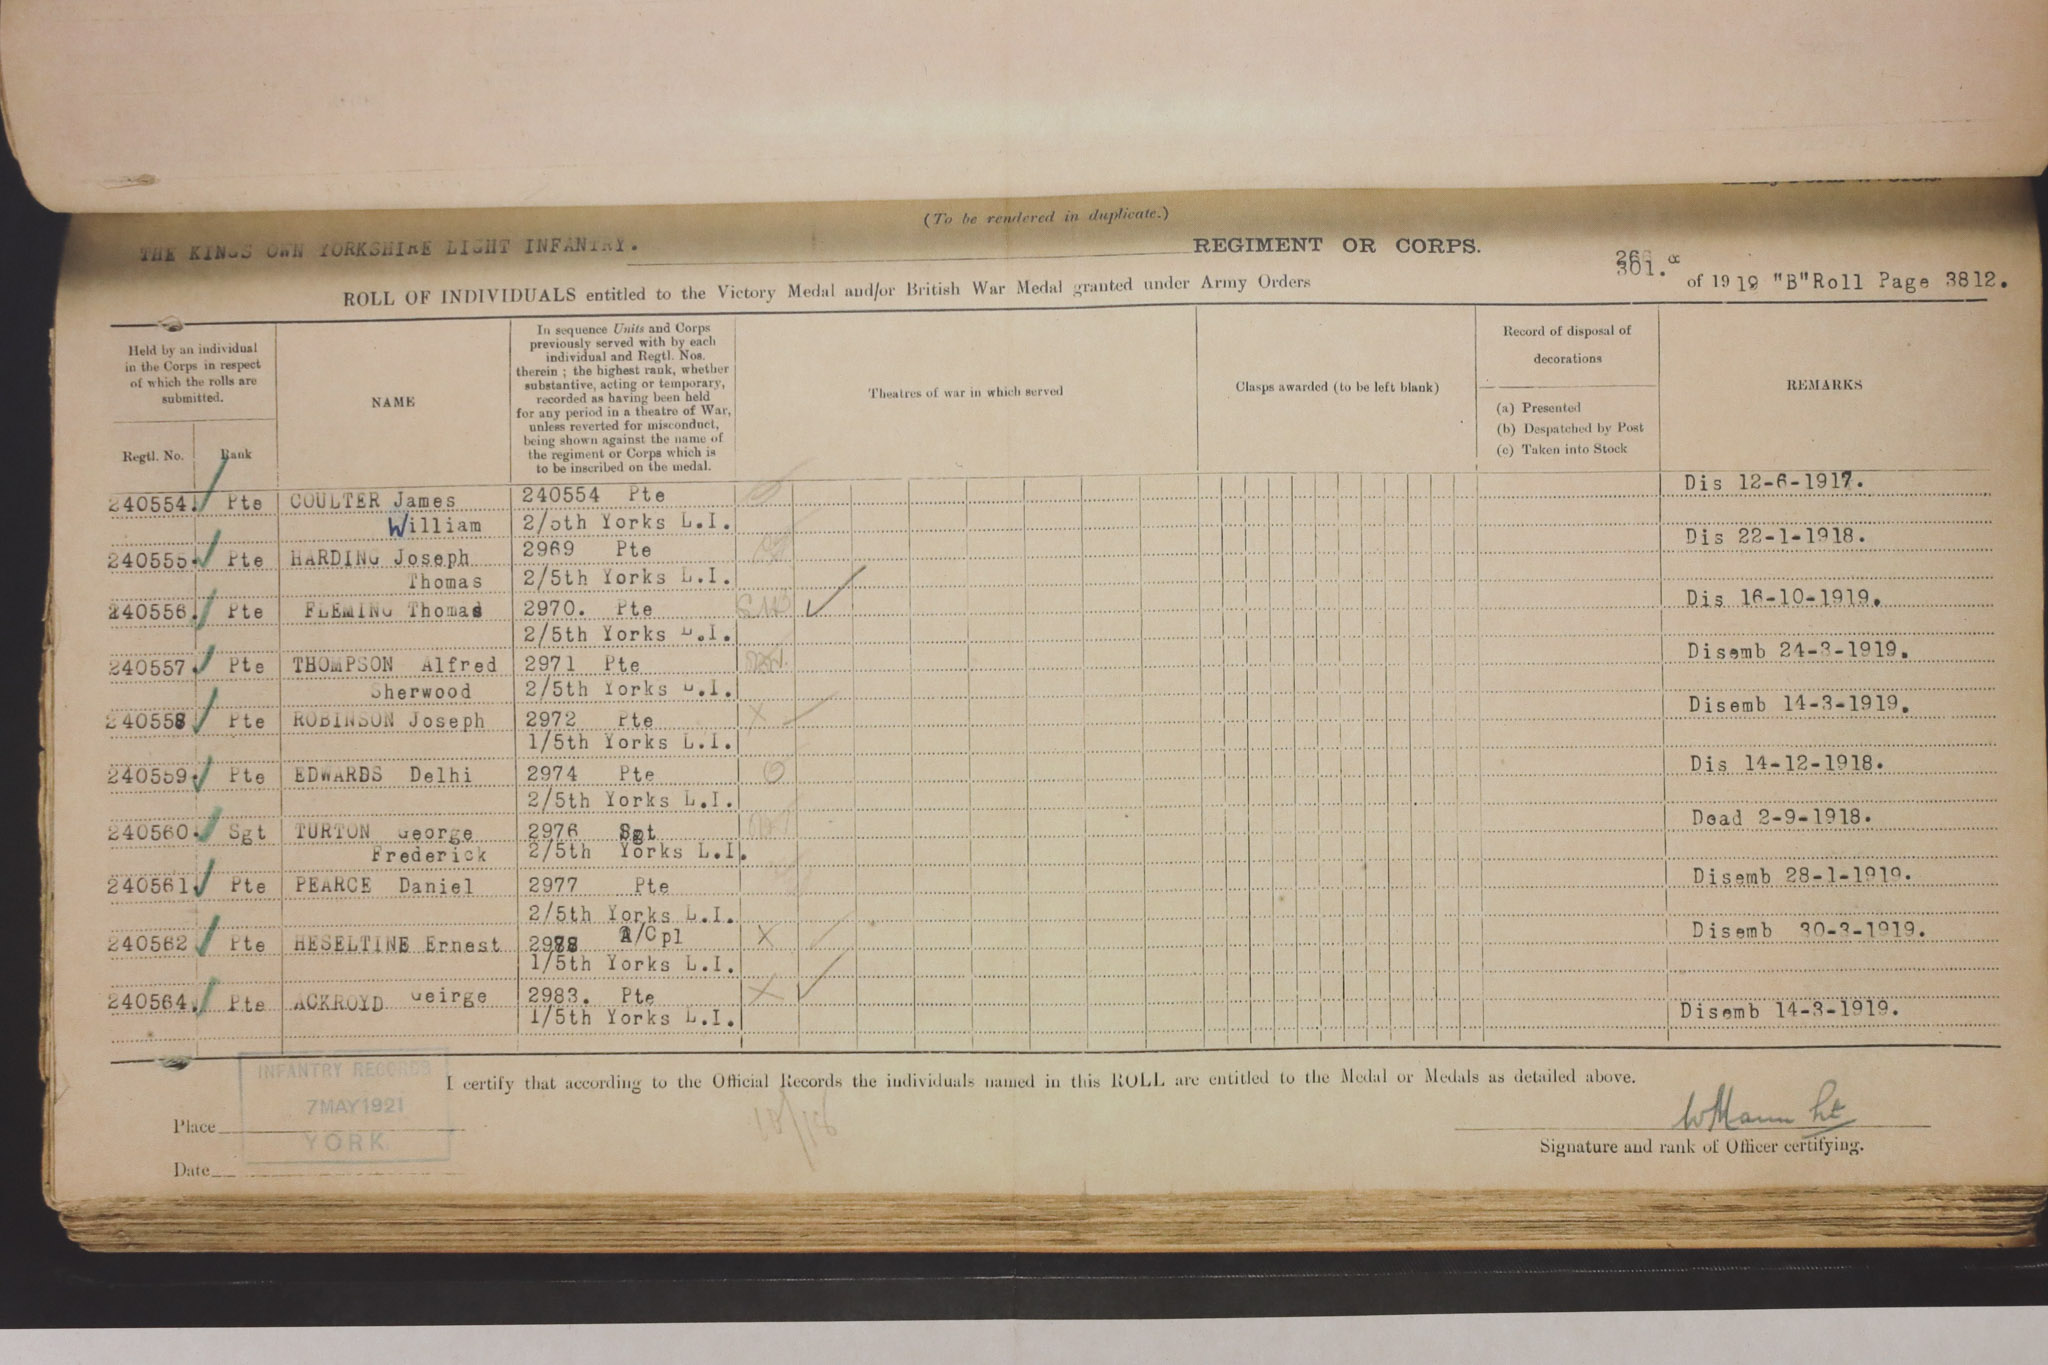 (To be rendered in duplicate.)
THE KINGS OWN YORKSHIRE LIGHT INFANTRY. REGIMENT OR CORPS.
301. &
ROLL OF INDIVIDUALS entitled to the Victory Medal and/or British War Medal granted under Army Orders of 1919 "B"Roll Page 3812.
Held by an individual
in the Corps in respect
of which the rolls are
submitted.
Regtl. No. Rank
NAME
In sequence Units and Corps
previously served with by each
individual and Regtl. Nos.
therein ; the highest rank, whether
substantive, acting or temporary,
recorded as having been held
for any period in a theatre of War,
unless reverted for misconduct,
being shown against the name of
the regiment or Corps which is
to be inscribed on the medal.
Theatres of war in which served
Clasps awarded (to be left blank)
Record of disposal of
decorations
(a) Presented
(b) Despatched by Post
(c) Taken into Stock
REMARKS
240554. Pte COULTER James 240554 Pte Dis 12-6-1917.
William 2/5th Yorks L.I.
240555. Pte HARDING Joseph 2969 Pte Dis 22-1-1918.
Thomas 2/5th Yorks L.I.
240556. Pte FLEMING Thomas 2970. Pte Dis 16-10-1919.
2/5th Yorks L.I.
240557 Pte THOMPSON Alfred 2971 Pte Disemb 24-3-1919.
Sherwood 2/5th Yorks L.I.
240558 Pte ROBINSON Joseph 2972 Pte Disemb 14-3-1919.
1/5th Yorks L.I.
240559. Pte EDWARDS Delhi 2974 Pte Dis 14-12-1918.
2/5th Yorks L.I.
240560. Sgt TURTON George 2976 Sgt Dead 2-9-1918.
Frederick 2/5th Yorks L.I.
240561 Pte PEARCE Daniel 2977 Pte Disemb 28-1-1919.
2/5th Yorks L.I.
240562 Pte HESELTINE Ernest A/Cpl Disemb 30-3-1919.
1/5th Yorks L.I.
240564. Pte ACKROYD Geirge 2983. Pte Disemb 14-3-1919.
1/5th Yorks L.I.
I certify that according to the Official Records the individuals named in this ROLL are entitled to the Medal or Medals as detailed above.
INFANTRY RECORDS
7 MAY 1921
YORK.
Place
Date
W Mann Lt
Signature and rank of Officer certifying.